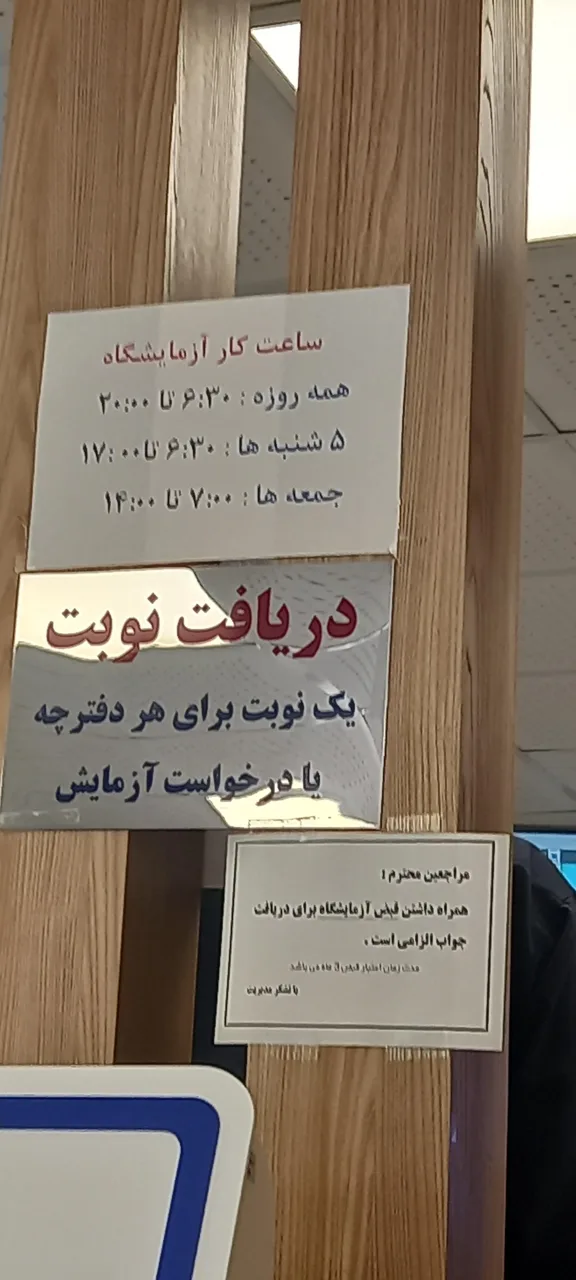 ساعت کار آزمایشگاه
همه روزه : ۶:۳۰ تا ۲۰:۰۰
۵ شنبه ها : ۶:۳۰ تا ۱۷:۰۰
جمعه ها : ۷:۰۰ تا ۱۴:۰۰
دریافت نوبت
یک نوبت برای هر دفترچه
یا درخواست آزمایش
مراجعین محترم :
همراه داشتن قبض آزمایشگاه برای دریافت
جواب الزامی است .
مدت زمان اعتبار قبض 3 ماه می باشد
با تشکر مدیریت